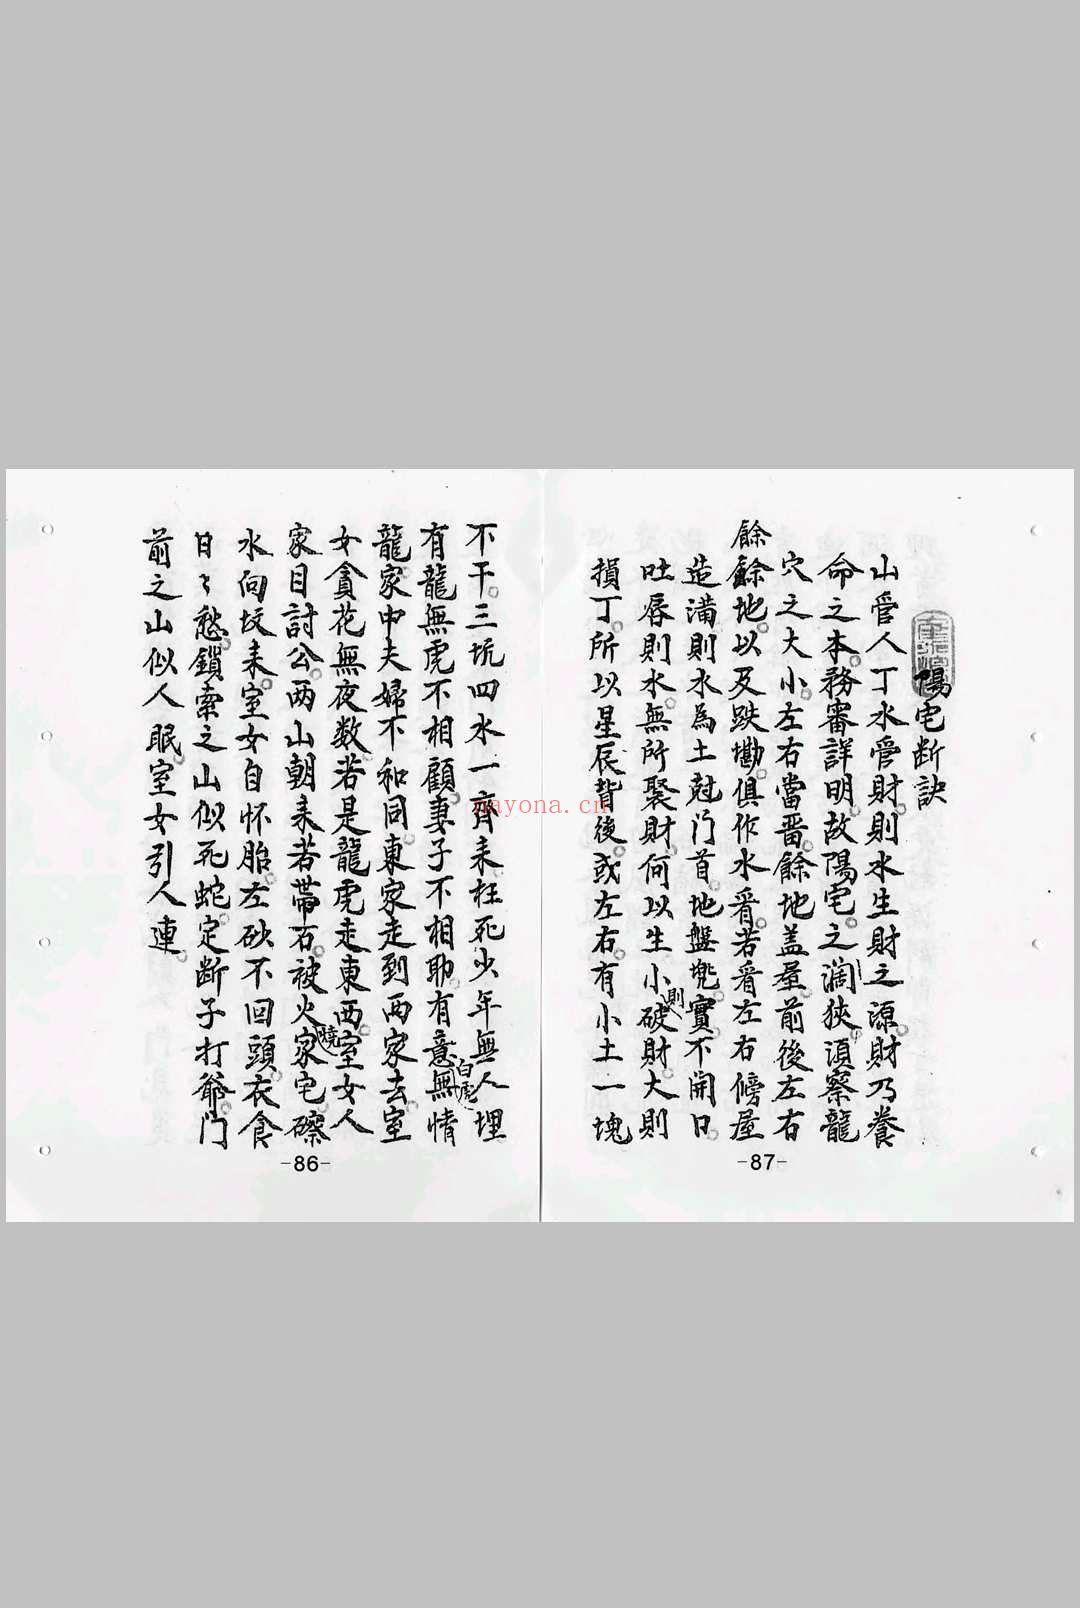 不干。三坑四水一齊来枉死少年無人埋
有龍無虎不相顧。妻子不相助。有意無情
白虎
龍家中夫婦不和同。東家走到西家去室
女貪花無夜数。若是龍虎走東西。室女人
家目討公。两山朝来若帶石。被火家宅磜
燒
水向坟来。室女自怀胎。左砂不回頭。衣食
日々愁。鎖索之山似死蛇。定断子打爺。门
前之山似人眠室女引人連。
-86-
陽宅断訣
山管人丁水管財。則水生財之源。財乃養
命之本。務審詳明。故陽宅之濶狹。湏察龍
穴之大小。左右當畨餘地盖屋前後左右
餘
餘地。以及跌墈。俱作水看。若看左右傍屋
造满則水為土尅门首。地盤堆實。不開口
吐唇則水無所聚。財何以生小破財。大則
則
損丁所以星辰背後。或左右有小土一塊
-87-
nayona.cn